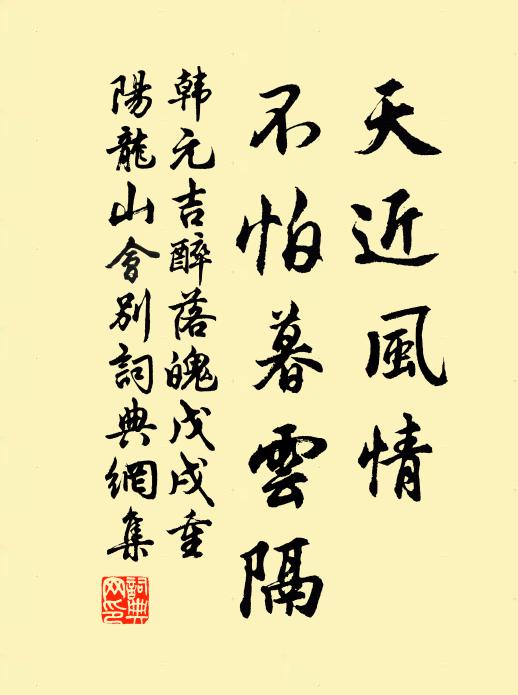 天近風情
不怕暮雲隔
韩元吉醉落魄戊戌重
陽龍山會別詞典網集
詞典網印